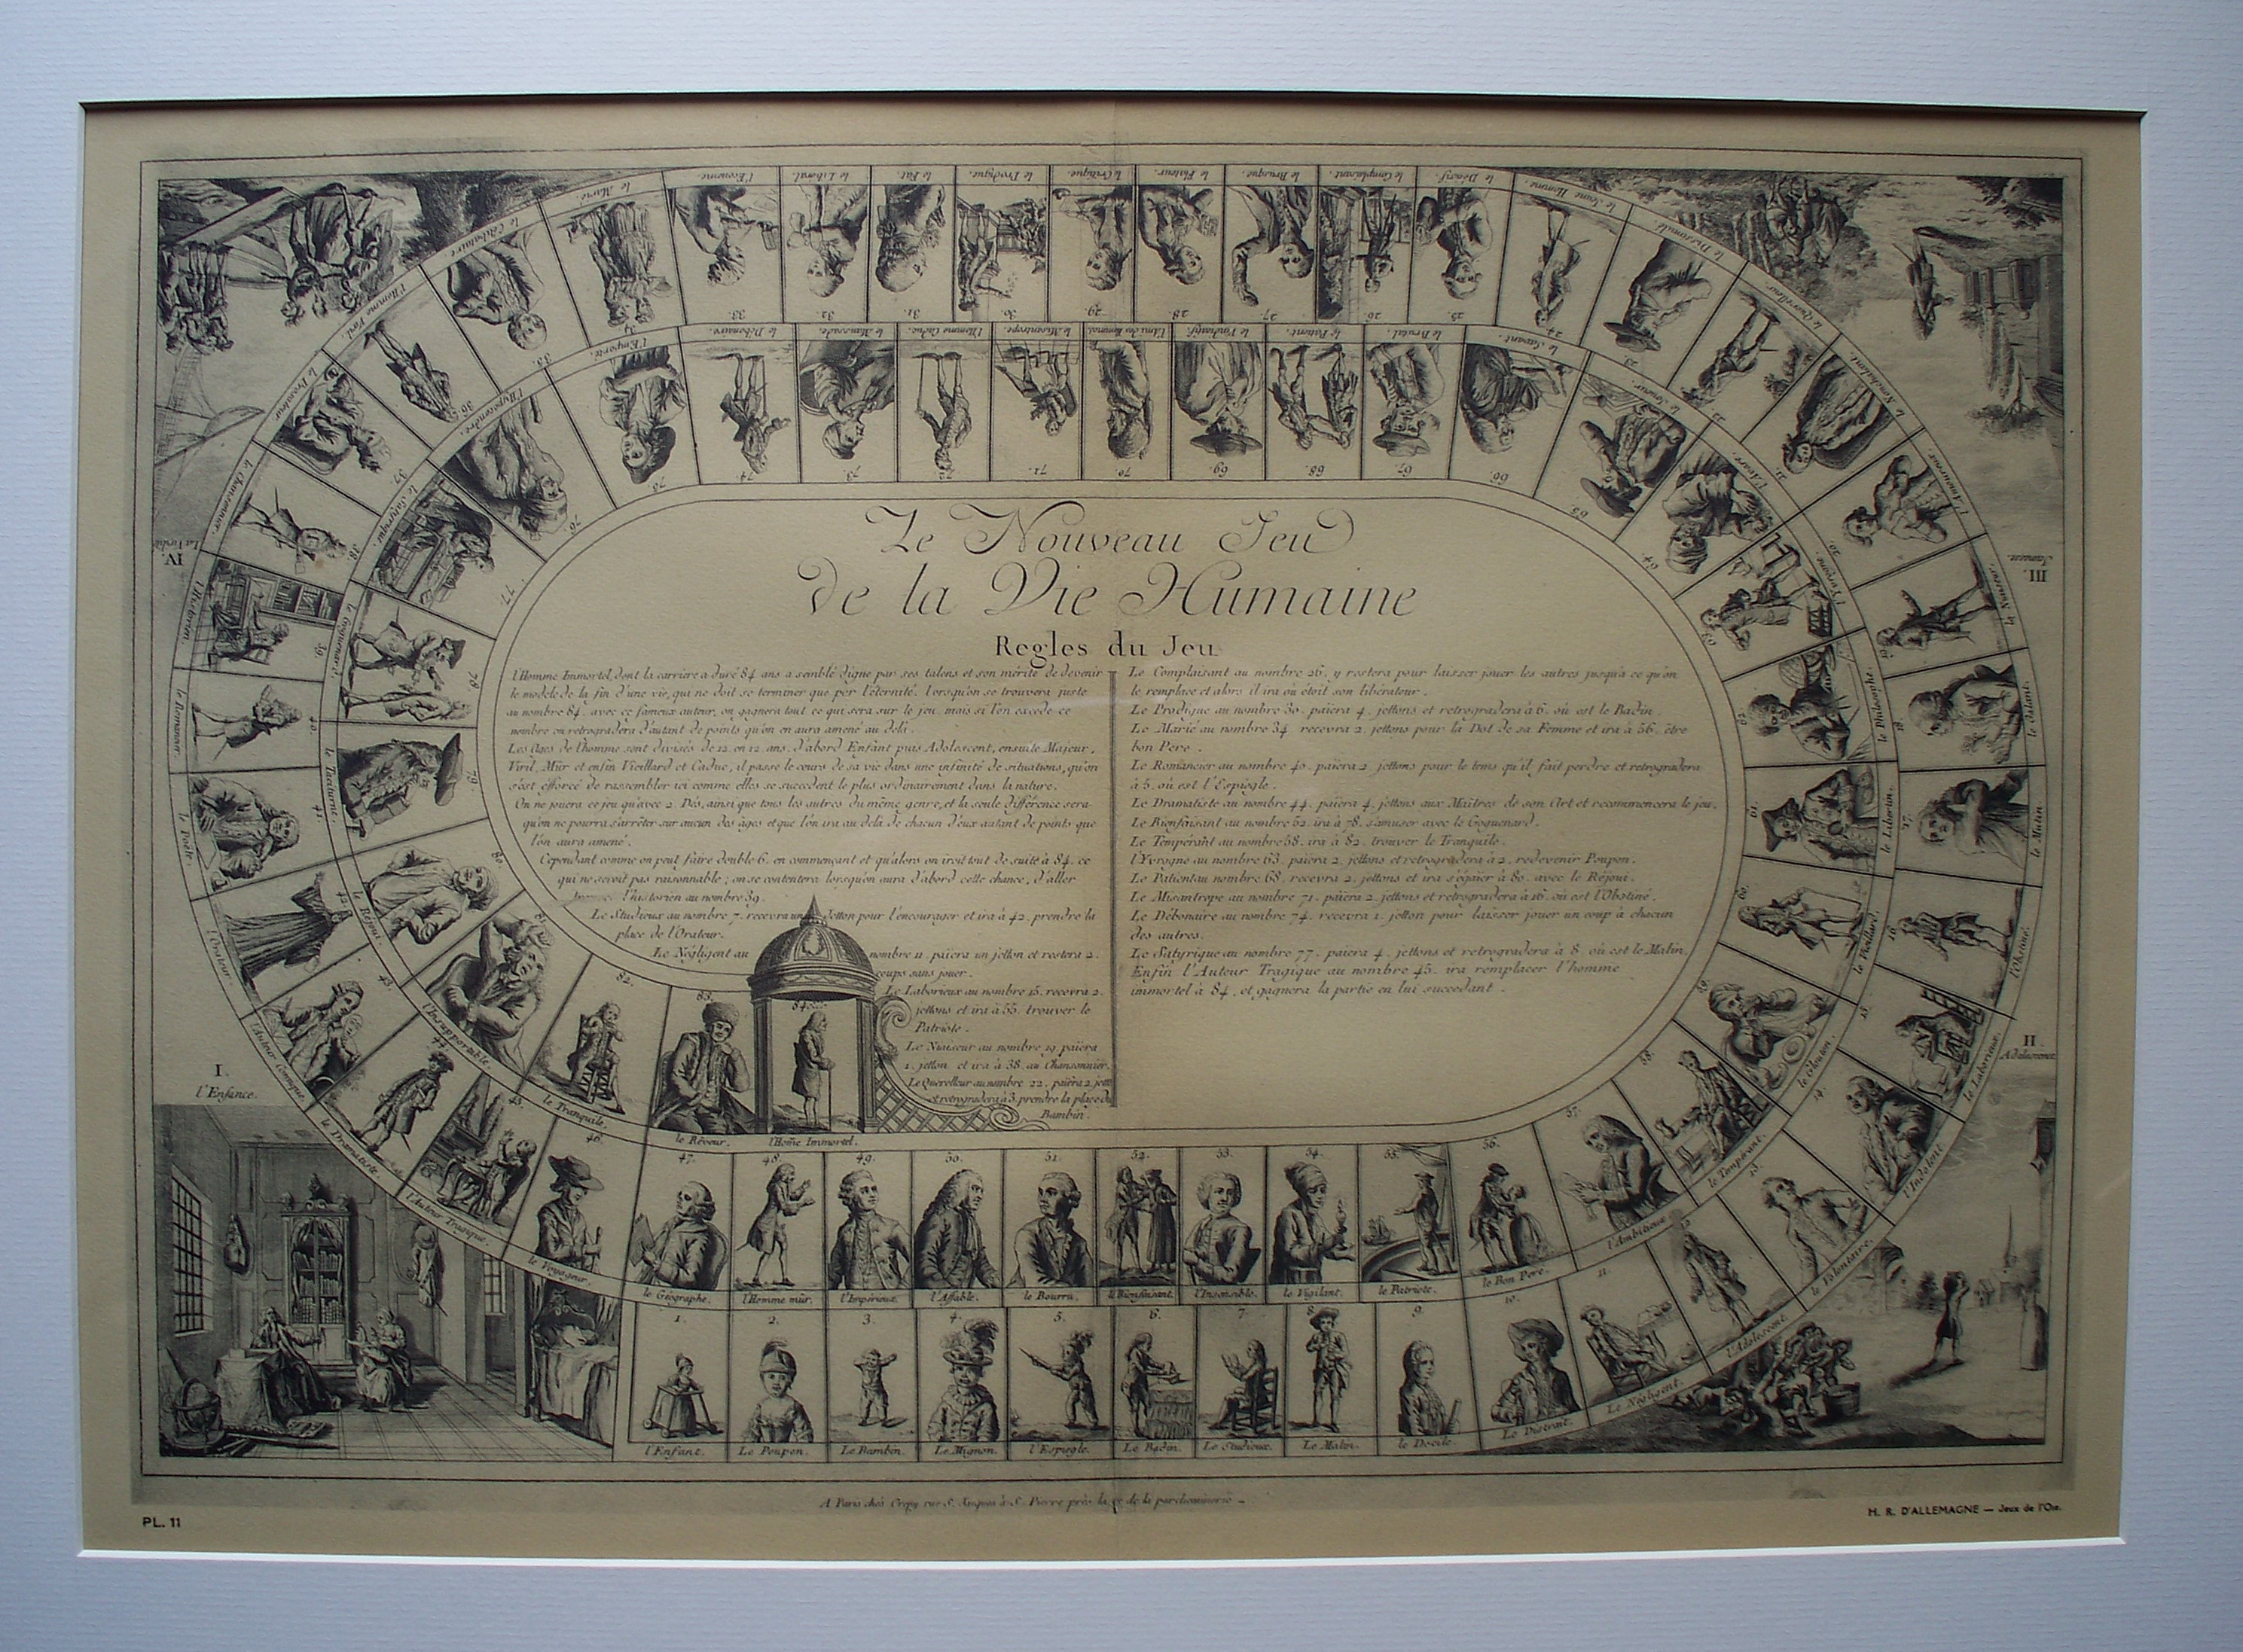 Le Nouveau Jeu
de la Vie Humaine
Regles du Jeu
l'Homme Immortel, dont la carriere a duré 84 ans a semblé digne par ses talens et son mérite de devenir
le modele de la fin d'une vie, qui ne doit se terminer que par l'éternité. Lorsqu'on se trouvera juste
au nombre 84. avec ce fameux auteur, on gagnera tout ce qui sera sur le jeu, mais si l'on excede ce
nombre on retrogradera d'autant de points qu'on en aura amené au delà.
Les Ages de l'homme sont divisés de 12 en 12 ans. d'abord Enfant puis Adolescent, ensuite Majeur,
Viril, Mûr et enfin Vieillard et Caduc, il passe le cours de sa vie dans une infinité de situations, qu'on
s'est éfforcé de rassembler ici comme elles se succedent le plus ordinairement dans la nature.
On ne jouera ce jeu qu'avec 2. Dés, ainsi que tous les autres du même genre, et la seule différence sera
qu'on ne pourra s'arrêter sur aucun des âges et que l'on ira au delà de chacun d'eux autant de points que
l'on aura amené.
Cependant comme on peut faire double 6. en commençant et qu'alors on iroit tout de suite à 84. ce
qui ne seroit pas raisonnable; on se contentera lorsqu'on aura d'abord cette chance, d'aller
l'historien au nombre 39.
Le Studieux au nombre 7. recevra un Jetton pour l'encourager et ira à 42. prendre la
place de l'Orateur.
Le Négligent au nombre 11 païera un jetton et restera 2.
coups sans jouer.
Le Laborieux au nombre 15. recevra 2.
jettons et ira à 55. trouver le
Patriote.
Le Niaiseur au nombre 19. païera
1. jetton et ira à 38. au Chansonnier.
Le Querelleur au nombre 22. païera 2. jett
et retrogradera à 3. prendre la place du
Bambin.
Le Complaisant au nombre 26. y restera pour laisser jouer les autres jusqu'à ce qu'on
le remplace et alors il ira où étoit son libérateur.
Le Prodigue au nombre 30. païera 4. jettons et retrogradera à 6. où est le Badin.
Le Marié au nombre 34 recevra 2. jettons pour la Dot de sa Femme et ira à 56. être
bon Pere.
Le Romancier au nombre 40. païera 2. jettons pour le tems qu'il fait perdre et retrogradera
à 5. où est l'Espiegle.
Le Dramatiste au nombre 44. païera 4. jettons aux Maîtres de son Art et recommencera le jeu.
Le Bienfaisant au nombre 52. ira à 78. s'amuser avec le Goguenard.
Le Temperant au nombre 58. ira à 82. trouver le Tranquile.
l'Yvrogne au nombre 63. païera 2. jettons et retrogradera à 2. redevenir Poupon.
Le Patient au nombre 68. recevra 2. jettons et ira s'égaïer à 80. avec le Réjoui.
Le Misantrope au nombre 71. païera 2. jettons et retrogradera à 16. où est l'Obstiné.
Le Débonaire au nombre 74. recevra 1. jetton pour laisser jouer un coup à chacun
des autres.
Le Satyrique au nombre 77. païera 4. jettons et retrogradera à 8. où est le Malin.
Enfin l'Auteur Tragique au nombre 45. ira remplacer l'homme
immortel à 84, et gagnera la partie en lui succedant.
1. l'Enfant.
2. Le Poupon.
3. Le Bambin.
4. Le Mignon.
5. l'Espiegle.
6. Le Badin.
7. Le Studieux.
8. Le Malin.
9. le Docile.
10. Le Distrait.
11. Le Négligent.
12. l'Adolescent.
13. le Volontaire.
14. l'Indolent
15. le Laborieux.
16. l'Obstiné.
17. le Mutin
18. le Galant.
19. le Niaiseur
20. l'Amoureux.
21. le Nonchalant.
22. le Querelleur.
23. le Dissimulé.
24. le Jeune Homme.
25. le Décisif.
26. le Complaisant.
27. le Brusque.
28. le Flateur.
29. le Critique.
30. le Prodigue.
31. le Fat.
32. le Liberal.
33. l'Econome.
34. le Marié.
35. le Célibataire.
36. l'Homme Viril.
37. le Procedeur.
38. le Chansonnier.
39. l'Historien.
40. le Romancier.
41. le Poëte.
42. l'Orateur.
43. l'Auteur Comique.
44. le Dramatiste.
45. l'Auteur Tragique.
46. le Voyageur.
47. le Géographe.
48. l'Homme mûr.
49. l'Impérieux.
50. l'Affable.
51. le Bourru.
52. le Bienfaisant.
53. l'Insensible.
54. le Vigilant.
55. le Patriote.
56. le Bon Pere.
57. l'Ambitieux
58. le Tempérant.
59. le Glouton.
60. le Vieillard.
61. le Libertin.
62. le Philosophe.
63. l'Yvrogne.
64. l'Avare.
65. le Joueur.
66. le Savant.
67. le Brutal.
68. le Patient.
69. le Pacifique.
70. l'Ami des femmes
71. le Misantrope.
72. l'Homme Caduc.
73. le Maussade.
74. le Débonaire.
75. l'Emporté.
76. l'Hypocondre.
77. le Satyrique.
78. le Goguenard.
79. le Taciturne.
80. le Réjoui.
81. l'Insuportable.
82. le Tranquile.
83. le Rêveur.
84. l'Home Immortel.
I.
l'Enfance.
II
Adolescence
III.
Jeunesse.
IV.
La Virilité
A Paris chés Crépy rue S. Jacques à S. Pierre près la rue de la parcheminerie
PL. 11
H. R. D'ALLEMAGNE — Jeux de l'Oie.